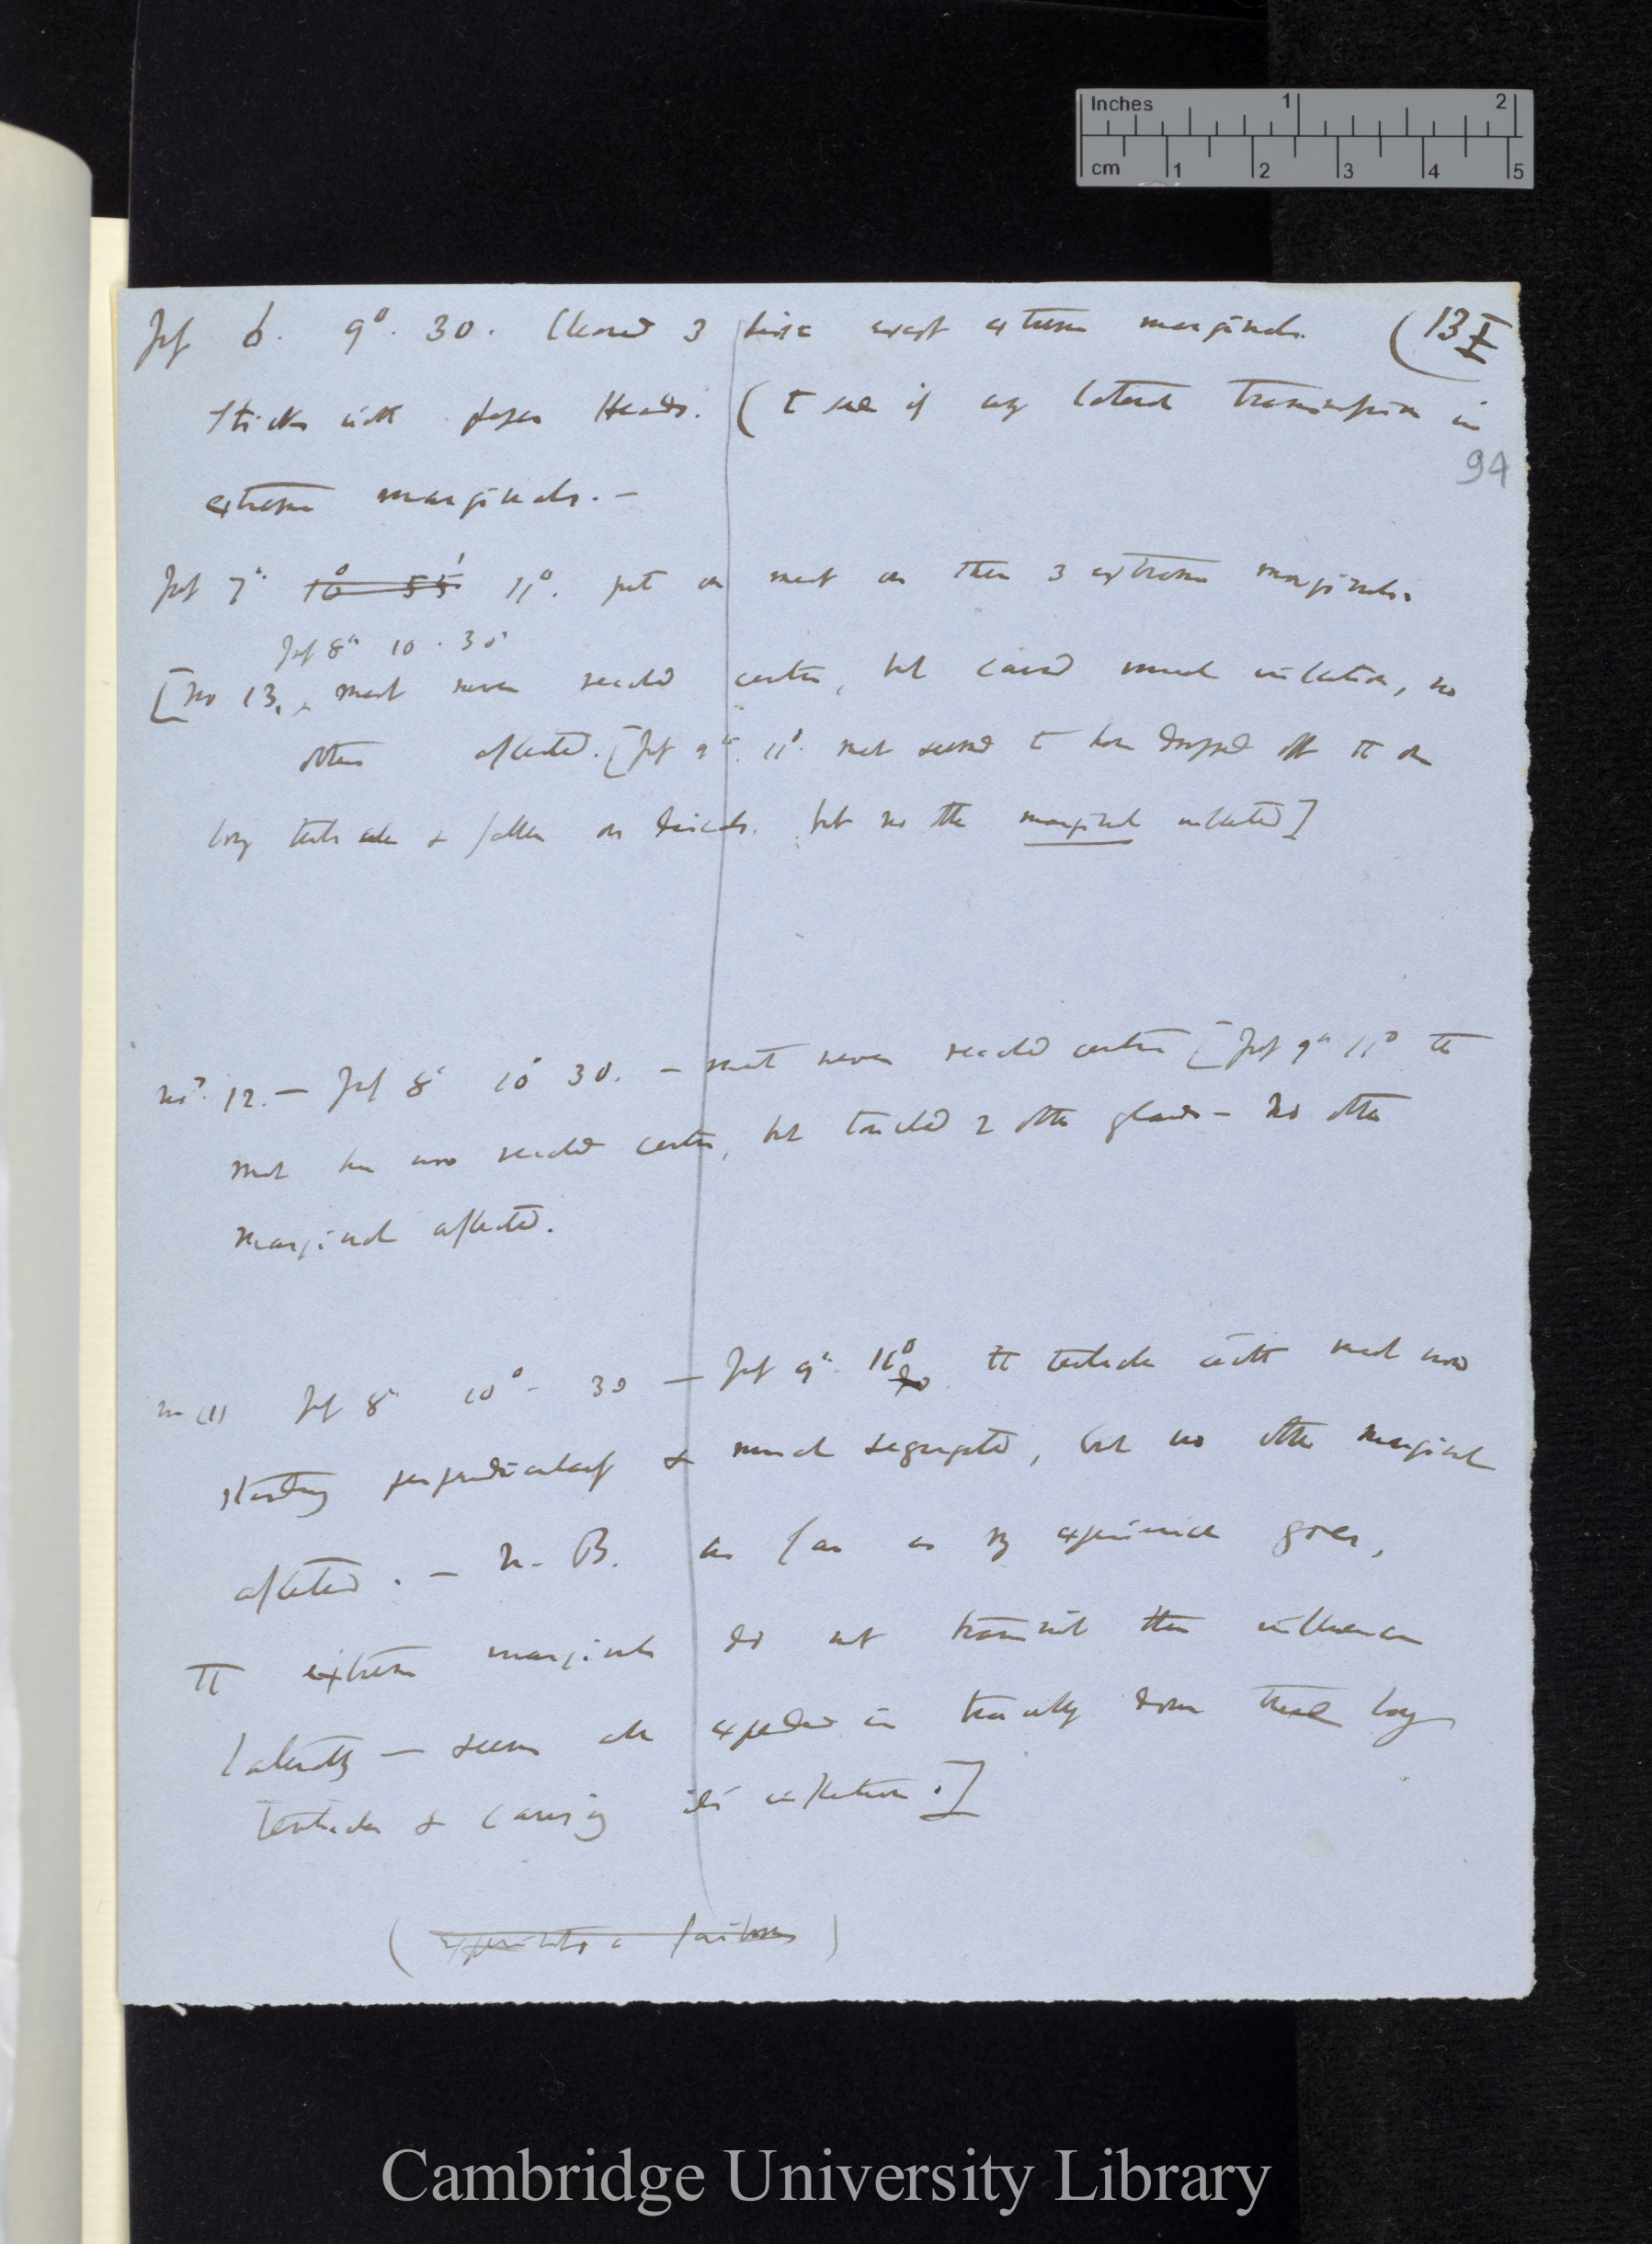 Inches 1 2
cm 1 2 3 4 5
6. 9°. 30. Cleared 3 except extreme marginals. (13 I
Sticks with paper Heads. (to see if any lateral transmission in
94
extreme marginals. —
7th 10° 55' 11°. put on meat on then 3 extreme marginals.
8th 10.30'
[No 13, meat never reached centre, but caused much inflection, no
others affected. [ 9th. 11°. meat seemed to have dropped off the one
long tentacle & fallen on discals. but no other marginal inflected]
No. 12. — 8th 10° 30. — meat never reached centre [ 9th 11° the
meat has now reached centre, but touched 2 other glands — No other
marginal affected.
no 11 8th 10° 30 — 9th. 11° the tentacle with meat now
standing perpendicularly & much segregated, but no other marginal
affected. — N.B. As far as my experience goes,
The extreme marginals do not transmit their influence
laterally — seems all expended in travelling down these long
Tentacles & causing its inflection.]